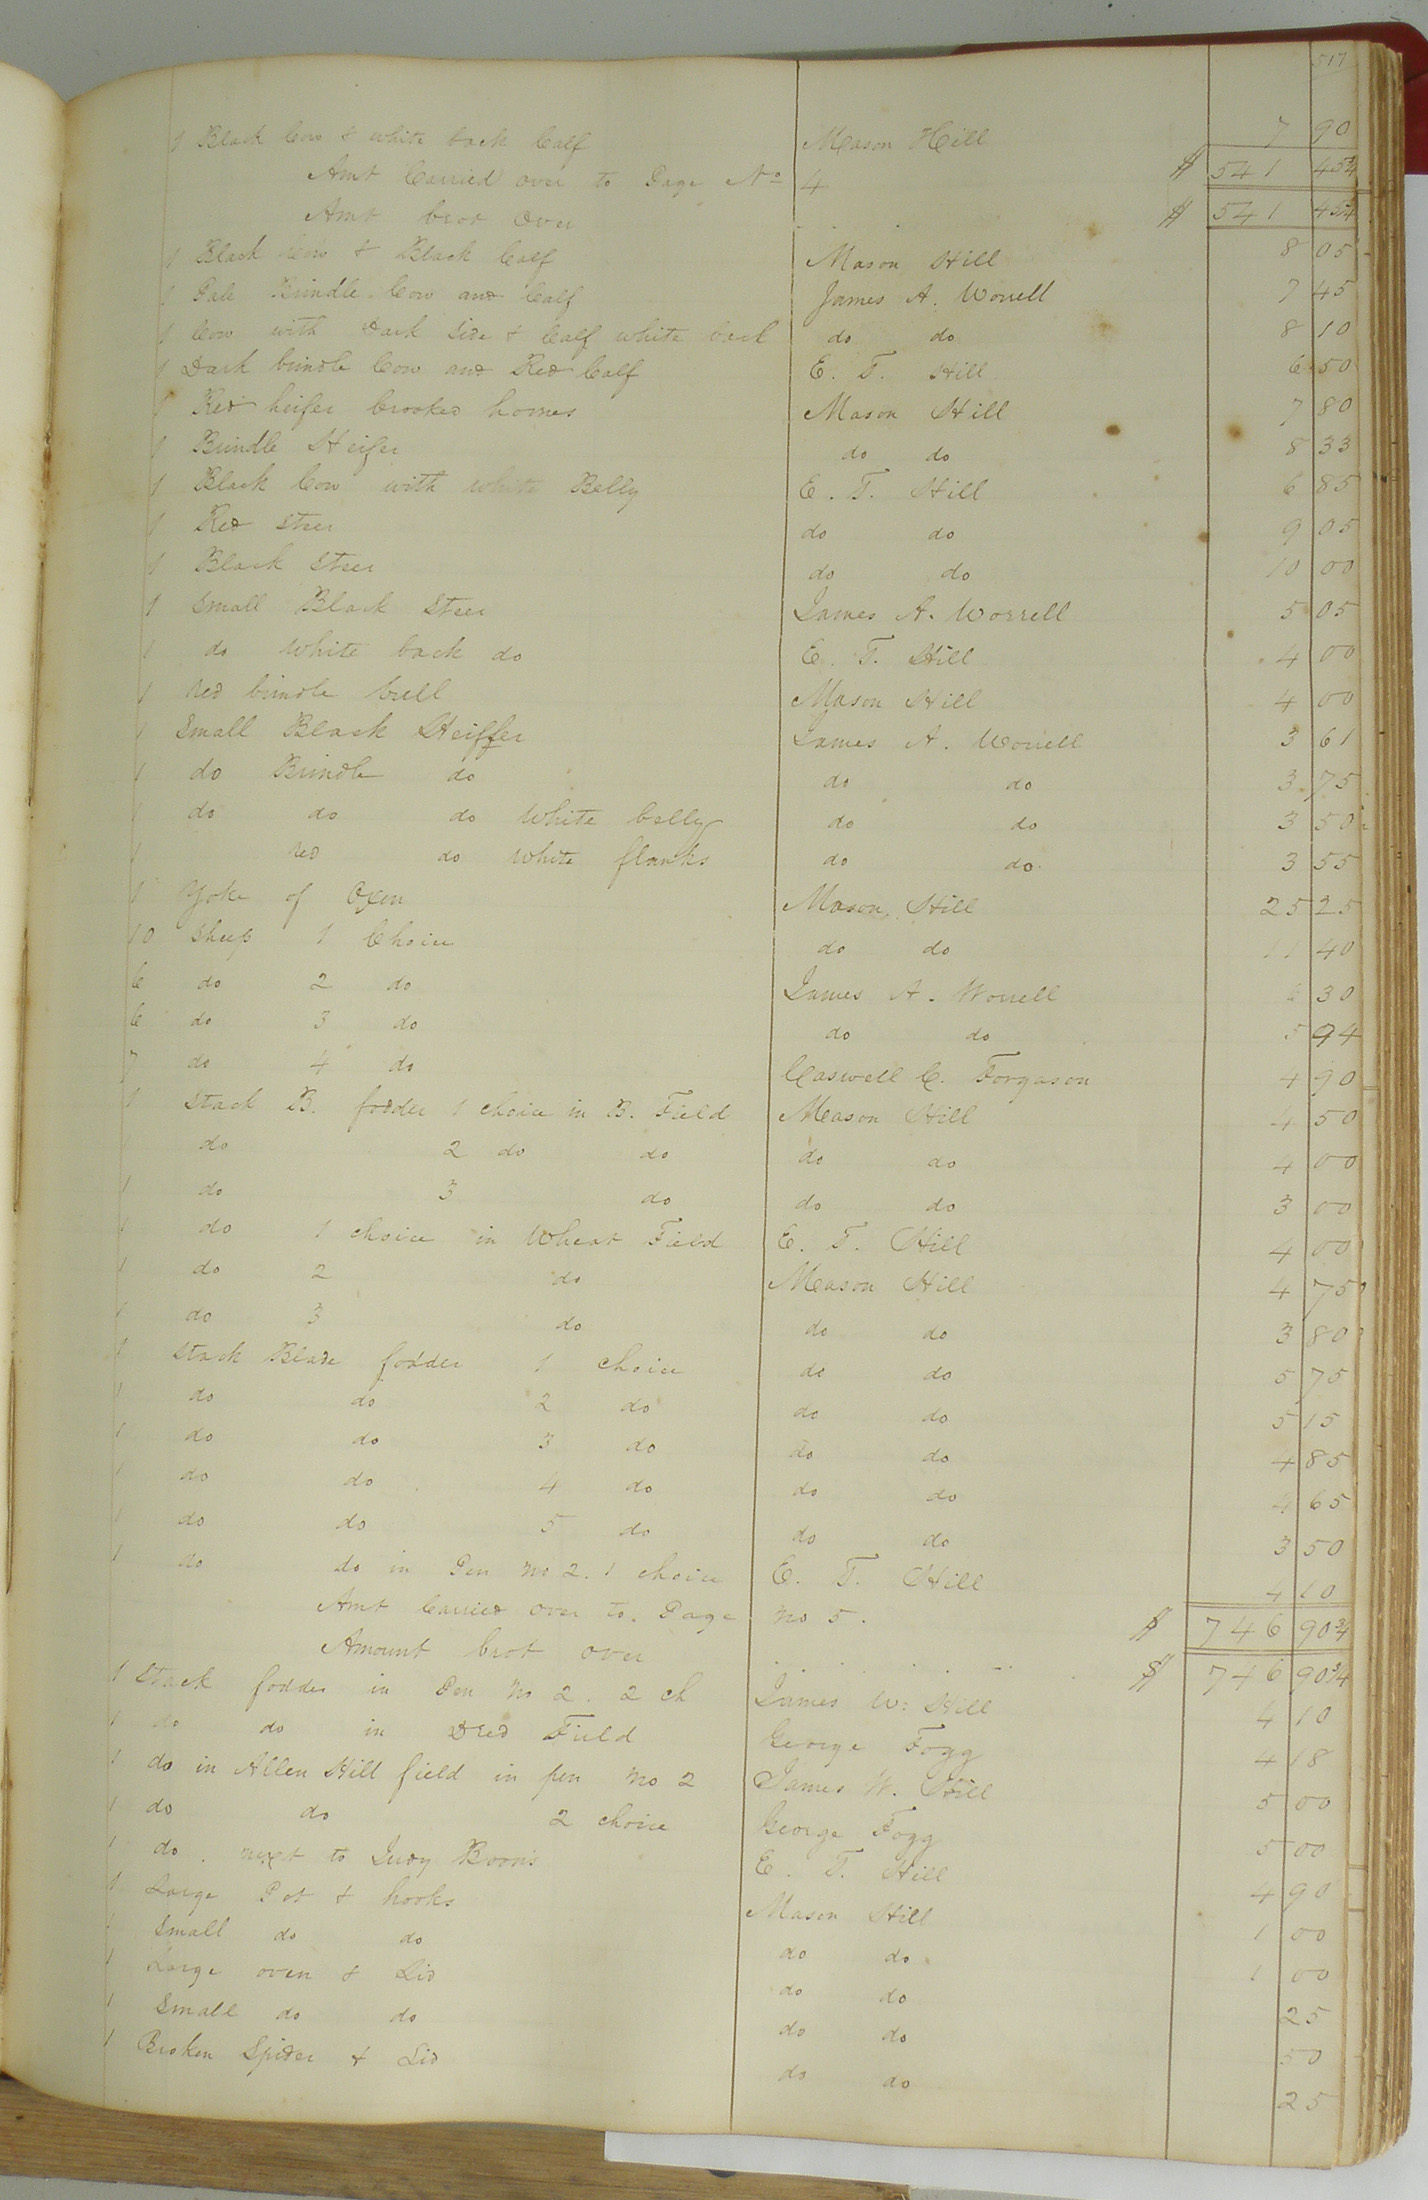 517
1 Black Cow & white back Calf Mason Hill 7 90
Amt Carried over to Page No 4 $ 541 45 3/4
Amt brot over $ 541 45 3/4
1 Black Cow & Black Calf Mason Hill 8 05
1 Pale Brindle Cow and Calf James A. Worrell 7 45
1 Cow with Dark Side & Calf white back do do 8 10
1 Dark brindle Cow and Red Calf E. T. Hill 6 50
1 Red heifer Crooked hornes Mason Hill 7 80
1 Brindle Heifer do do 8 33
1 Black Cow with White Belly E. T. Hill 6 85
1 Red Steer do do 9 05
1 Black Steer do do 10 00
1 Small Black Steer James A. Worrell 5 05
1 do White back do E. T. Hill 4 00
1 Red brindle bull Mason Hill 4 00
1 Small Black Heiffer James A. Worrell 3 61
1 do Brindle do do do 3 75
1 do do do White belly do do 3 50
1 Red do White flanks do do 3 55
1 Yoke of Oxen Mason Hill 25 25
10 Sheep 1 Choice do do 11 40
6 do 2 do James A. Worrell 6 30
6 do 3 do do do 5 94
7 do 4 do Caswell C. Forgason 4 90
1 Stack B. fodder 1 choice in B. Field Mason Hill 4 50
1 do 2 do do do do 4 00
1 do 3 do do do 3 00
1 do 1 choice in Wheat Field E. T. Hill 4 00
1 do 2 do Mason Hill 4 75
1 do 3 do do do 3 80
1 Stack Blade fodder 1 choice do do 5 75
1 do do 2 do do do 5 15
1 do do 3 do do do 4 85
1 do do 4 do do do 4 65
1 do do 5 do do do 3 50
1 do do in Pen No 2. 1 choice E. T. Hill 4 10
Amt Carried over to Page No 5. $ 746 90 3/4
Amount brot over $ 746 90 3/4
1 Stack fodder in Pen No 2. 2 ch James W. Hill 4 10
1 do do in Dred Field George Fogg 4 18
1 do in Allen Hill field in pen No 2 James W. Hill 5 00
1 do do 2 choice George Fogg 5 00
1 do. next to Judy Boons E. T. Hill 4 90
1 Large Pot & hooks Mason Hill 1 00
1 Small do do do do 1 00
1 Large oven & Lid do do 25
1 Small do do do do 50
1 Broken Spider & Lid do do 25